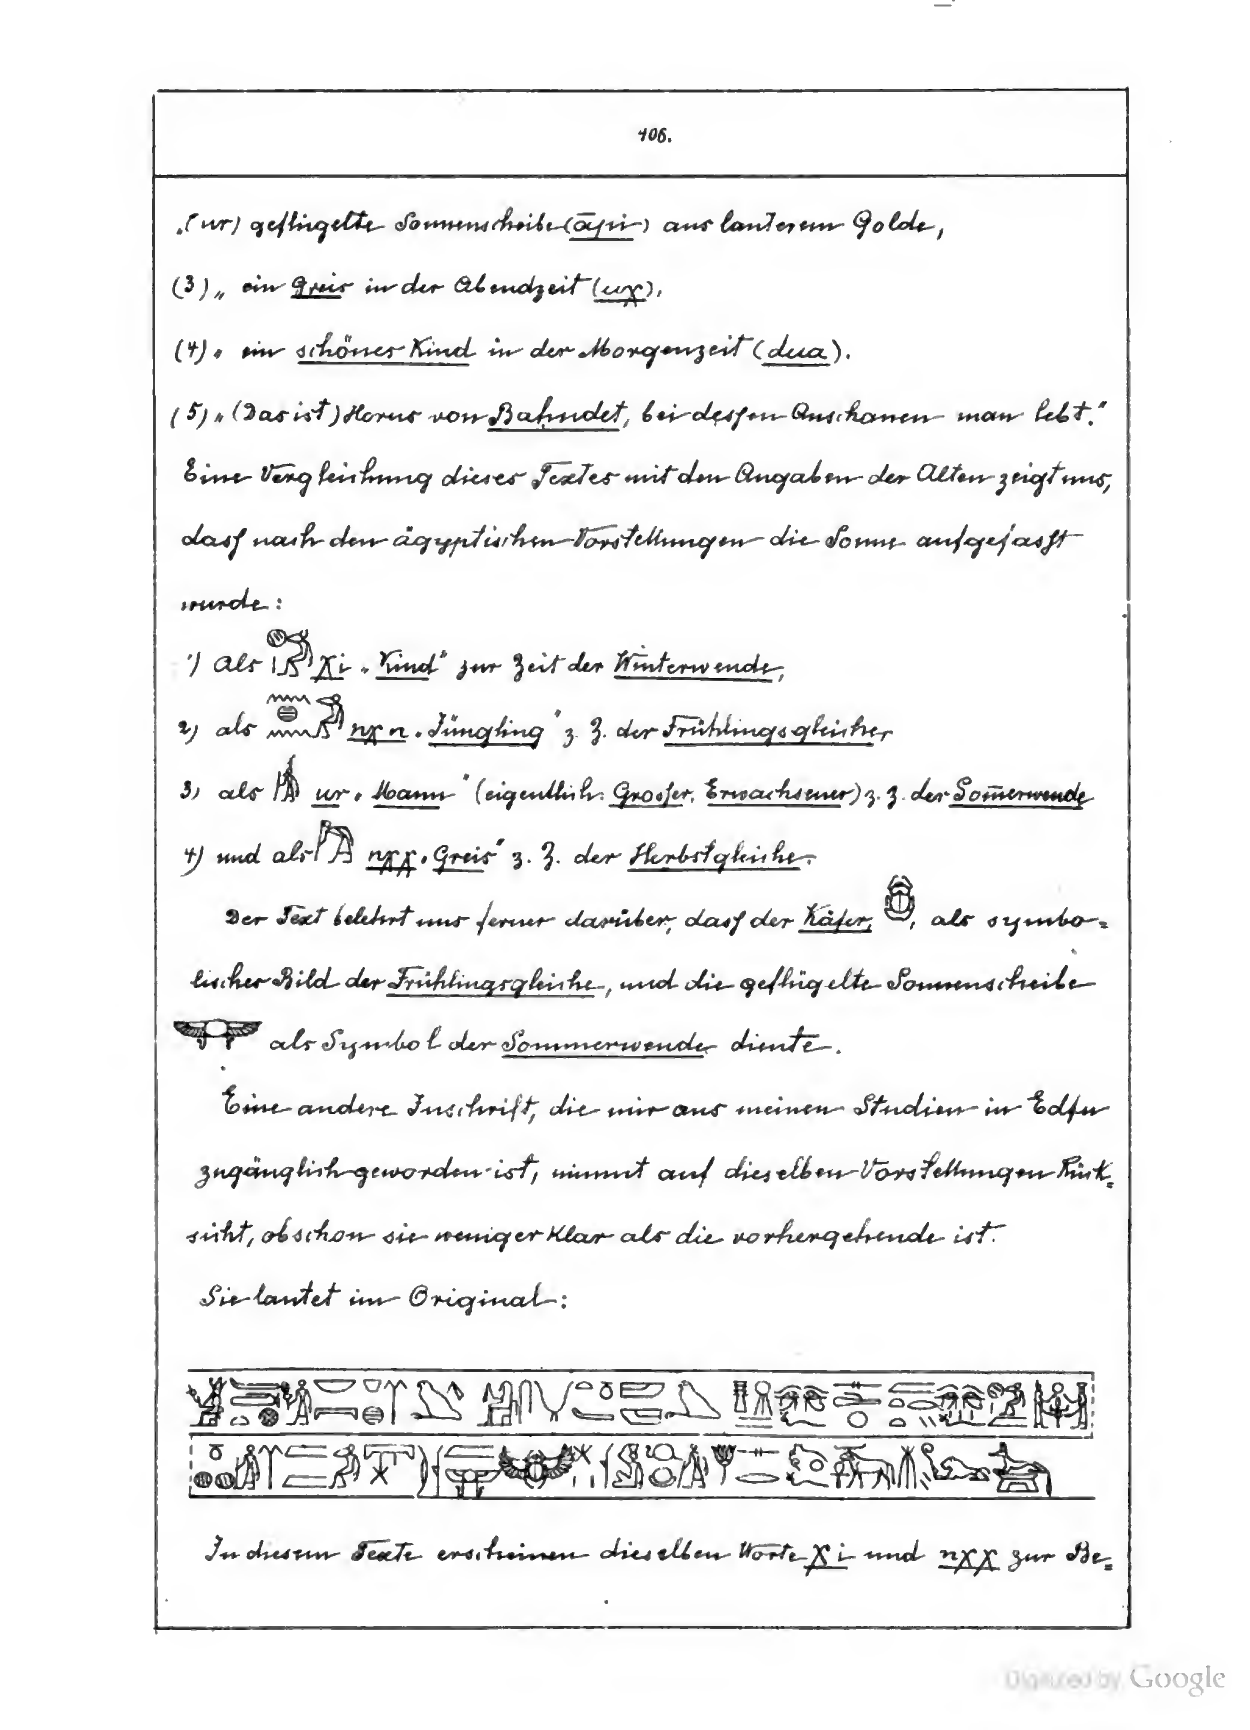 106.
„(ur) geflügelte Sonnenscheibe (āpi) aus lauterem Golde,
(3) „ ein Greis in der Abendzeit (uχ),
(4) „ ein schönes Kind in der Morgenzeit (dua).
(5) „ (Das ist) Horus von Bahudet, bei dessen Anschauen man lebt."
Eine Vergleichung dieses Textes mit den Angaben der Alten zeigt uns,
dass nach den ägyptischen Vorstellungen die Sonne aufgefasst
wurde:
1) als χi „Kind" zur Zeit der Winterwende,
2) als nχn „Jüngling" z. Z. der Frühlingsgleiche,
3) als ur „Mann" (eigentlich: Grosser, Erwachsener) z. Z. der Som̄erwende
4) und als nχχ „Greis" z. Z. der Herbstgleiche.
Der Text belehrt uns ferner darüber, dass der Käfer, , als symbo=
lisches Bild der Frühlingsgleiche, und die geflügelte Sonnenscheibe
als Symbol der Sommerwende diente.
Eine andere Inschrift, die mir aus meinen Studien in Edfu
zugänglich geworden ist, nimmt auf dieselben Vorstellungen Rück=
sicht, obschon sie weniger klar als die vorhergehende ist.
Sie lautet im Original:
In diesem Texte erscheinen dieselben Worte χi und nχχ zur Be=
Digitized by Google